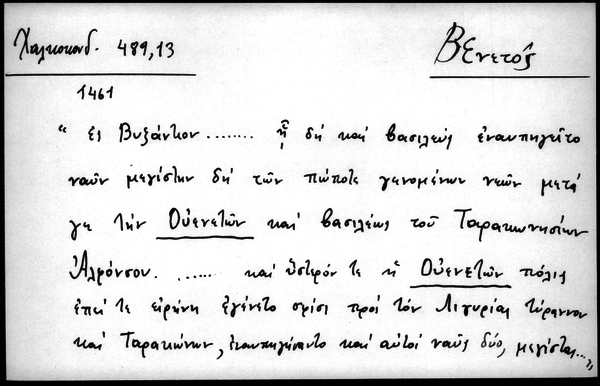 Χαλκοκονδ. 489,13
Βενετός
1461
" ἐς Βυζάντιον ........ ᾗ δὴ καὶ βασιλεὺς ἐναυπηγεῖτο
ναῦν μεγίστην δὴ τῶν πώποτε γενομένων νεῶν μετά
γε τὴν Οὐενετῶν καὶ βασιλέως τοῦ Ταρακωνησίων
Ἀλφόνσου. ....... καὶ ὕστερόν τε ἡ Οὐενετῶν πόλις
ἐπεί τε εἰρήνη ἐγένετο σφίσι πρὸς τὸν Λιγυρίας τύραννον
καὶ Ταρακώνων, ἐναυπηγήσαντο καὶ αὐτοὶ ναῦς δύο, μεγίστας..."